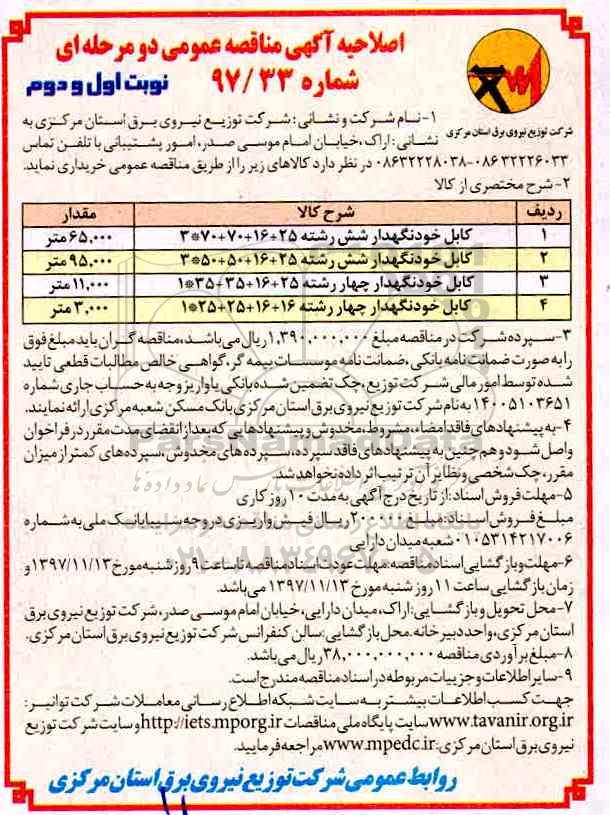 اصلاحیه آگهی مناقصه عمومی دو مرحله ای
شماره ۹۷/۳۳ نوبت اول و دوم
شرکت توزیع نیروی برق استان مرکزی
۱- نام شرکت و نشانی: شرکت توزیع نیروی برق استان مرکزی به
نشانی: اراک، خیابان امام موسی صدر، امور پشتیبانی با تلفن تماس
۰۸۶۳۲۲۲۸۰۳۸-۰۸۶۳۲۲۲۶۰۳۳ در نظر دارد کالاهای زیر را از طریق مناقصه عمومی خریداری نماید.
۲- شرح مختصری از کالا
ردیف شرح کالا مقدار
۱ کابل خودنگهدار شش رشته ۲۵+۱۶+۷۰+۷۰*۳ ۶۵,۰۰۰ متر
۲ کابل خودنگهدار شش رشته ۲۵+۱۶+۵۰+۵۰*۳ ۹۵,۰۰۰ متر
۳ کابل خودنگهدار چهار رشته ۲۵+۱۶+۳۵+۳۵*۱ ۱۱,۰۰۰ متر
۴ کابل خودنگهدار چهار رشته ۱۶+۱۶+۲۵+۲۵*۱ ۳,۰۰۰ متر
۳- سپرده شرکت در مناقصه مبلغ ۱,۳۹۰,۰۰۰,۰۰۰ ریال می باشد، مناقصه گران باید مبلغ فوق
را به صورت ضمانت نامه بانکی، ضمانت نامه موسسات بیمه گر، گواهی خالص مطالبات قطعی تایید
شده توسط امور مالی شرکت توزیع، چک تضمین شده بانکی یا واریز وجه به حساب جاری شماره
۱۴۰۰۵۱۰۳۶۵۱ به نام شرکت توزیع نیروی برق استان مرکزی بانک مسکن شعبه مرکزی ارائه نمایند.
۴- به پیشنهادهای فاقد امضاء، مشروط، مخدوش و پیشنهادهایی که بعد از انقضای مدت مقرر در فراخوان
واصل شود و هم چنین به پیشنهادهای فاقد سپرده، سپرده های مخدوش، سپرده های کمتر از میزان
مقرر، چک شخصی و نظایر آن ترتیب اثر داده نخواهد شد.
۵- مهلت فروش اسناد: از تاریخ درج آگهی به مدت ۱۰ روز کاری
مبلغ فروش اسناد: مبلغ ریال فیش واریزی در وجه سیبا بانک ملی به شماره
۰۱۰۵۳۱۴۲۱۷۰۰۶ شعبه میدان دارایی
۶- مهلت و بازگشایی اسناد مناقصه: مهلت عودت اسناد مناقصه تا ساعت ۹ روز شنبه مورخ ۱۳۹۷/۱۱/۱۳ و
زمان بازگشایی ساعت ۱۱ روز شنبه مورخ ۱۳۹۷/۱۱/۱۳ می باشد.
۷- محل تحویل و بازگشایی: اراک، میدان دارایی، خیابان امام موسی صدر، شرکت توزیع نیروی برق
استان مرکزی، واحد دبیرخانه. محل بازگشایی: سالن کنفرانس شرکت توزیع نیروی برق استان مرکزی.
۸- مبلغ برآوردی مناقصه ۳۸,۰۰۰,۰۰۰,۰۰۰ ریال می باشد.
۹- سایر اطلاعات و جزییات مربوطه در اسناد مناقصه مندرج است.
جهت کسب اطلاعات بیشتر به سایت شبکه اطلاع رسانی معاملات شرکت توانیر:
www.tavanir.org.ir سایت پایگاه ملی مناقصات http://iets.mporg.ir و سایت شرکت توزیع
نیروی برق استان مرکزی: www.mpedc.ir مراجعه فرمایید.
روابط عمومی شرکت توزیع نیروی برق استان مرکزی